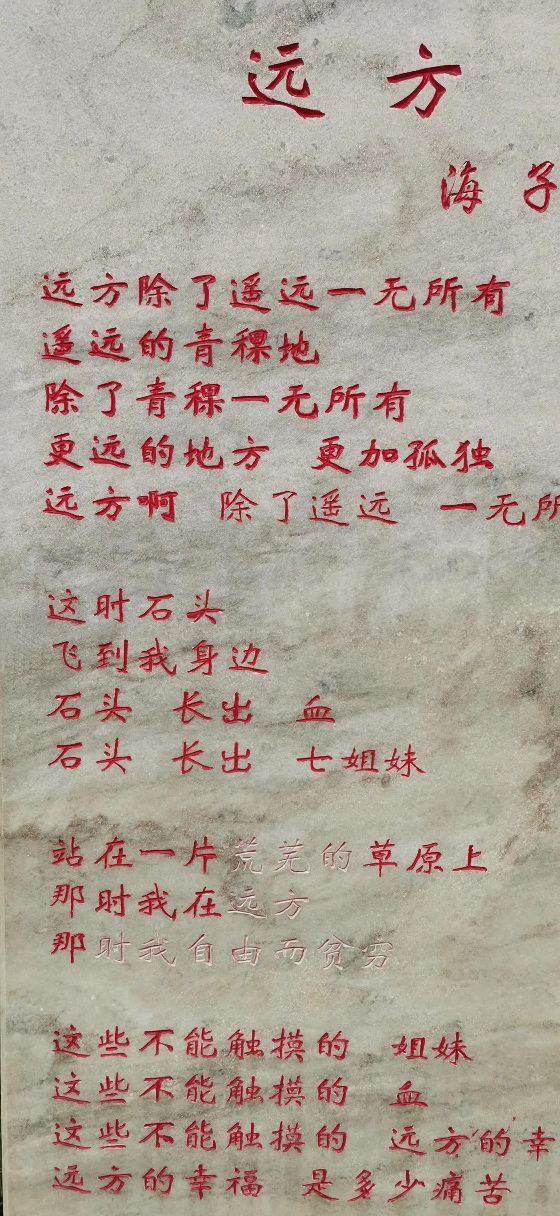 远方
海子
远方除了遥远一无所有
遥远的青稞地
除了青稞一无所有
更远的地方 更加孤独
远方啊 除了遥远 一无所
这时石头
飞到我身边
石头 长出 血
石头 长出 七姐妹
站在一片荒芜的草原上
那时我在远方
那时我自由而贫穷
这些不能触摸的 姐妹
这些不能触摸的 血
这些不能触摸的 远方的幸
远方的幸福 是多少痛苦